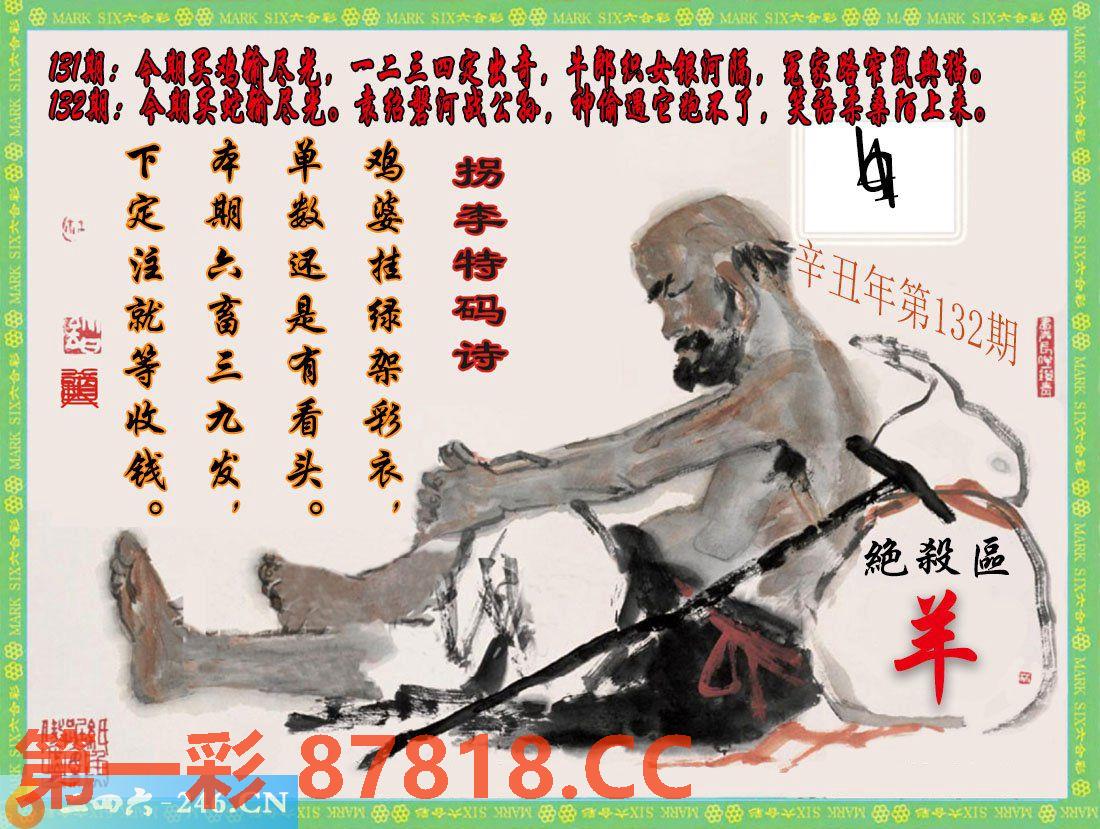 MARK SIX六合彩
131期：今期买鸡输尽光，一二三四定出奇，牛郎织女银河隔，冤家路窄鼠與猫。
132期：今期买蛇输尽光。袁绍磐河战公孙，神偷遇它跑不了，笑语柔桑陌上来。
拐李特码诗
鸡婆挂绿架彩衣，
单数还是有看头。
本期六畜三九发，
下定注就等收钱。
辛丑年第132期
絶殺區
羊
第一彩 87818.CC
二四六-246.CN